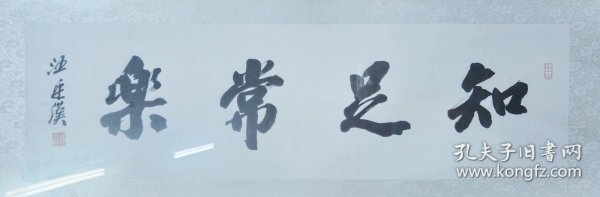 知足常樂
孔夫子旧书网
www.kongfz.com